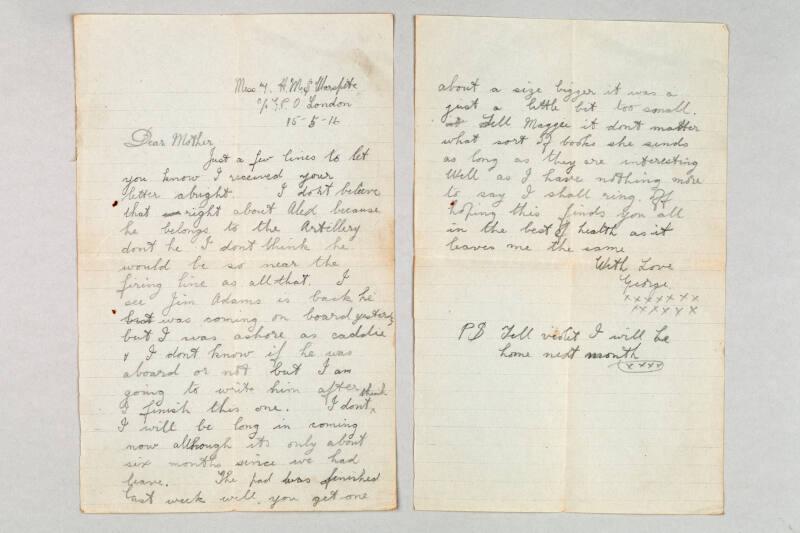 Mess 4. H.M.S Warspite
c/o G.P.O London
15-5-16
Dear Mother
Just a few lines to let
you know I received your
letter alright. I dont believe
that right about Aled because
he belongs to the Artillery
dont he I dont think he
would be so near the
firing line as all that. I
see Jim Adams is back he
was coming on board yesterday
but I was ashore as caddie
& I dont know if he was
aboard or not but I am
going to write him after
I finish this one. I dont think
I will be long in coming
now although its only about
six months since we had
leave. The pad was finished
last week will you get one
about a size bigger it was a
just a little bit too small.
Tell Maggie it dont matter
what sort of books she sends
as long as they are interesting
Well as I have nothing more
to say I shall ring off
hoping this finds you all
in the best of health as it
leaves me the same
With Love
George.
xxxxxxx
xxxxxx
PS Tell violet I will be
home next month
(xxxx)